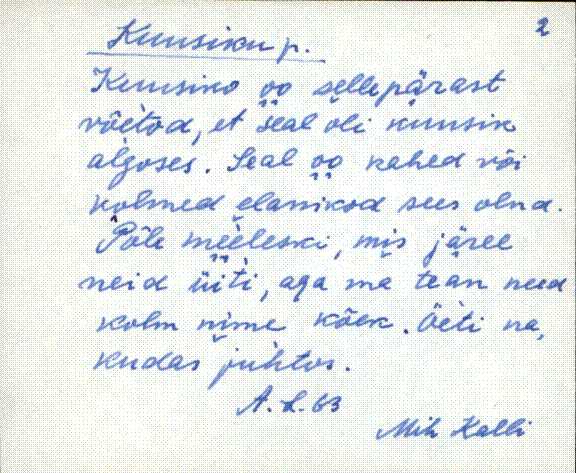 2
Kuusiku p.
Kuusiko oo sellepärast
võetod, et seal oli kuusik
algoses. Seal oo kahed või
kolmed elanikod sees olnd.
Põle meeleski, mis järel
neid üiti, aga ma tean need
kolm nime kõik. Öeti na,
kudas juhtos.
A. L. 63
Mih Kalli